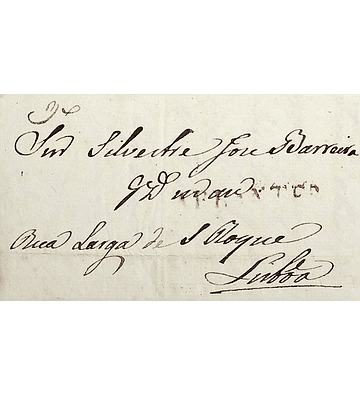 Snr Silvestre Joze Barreira
q Ds m an
Rua Larga de S Roque
Lisboa